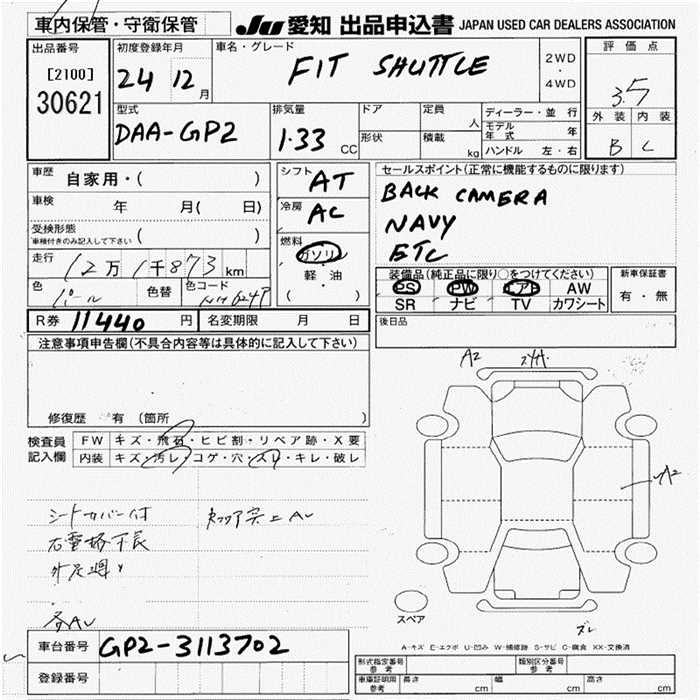 車内保管・守衛保管
JU 愛知 出品申込書 JAPAN USED CAR DEALERS ASSOCIATION
出品番号
[2100]
30621
初度登録年月
24 12月
車名・グレード
FIT SHUTTLE
2WD
・
4WD
評価点
3.5
外装 内装
B C
型式
DAA-GP2
排気量
1.33 CC
ドア
形状
定員
人
積載
kg
ディーラー・並行
モデル年式 年
ハンドル 左・右
車歴 自家用・( )
車検 年 月( 日)
受検形態
車検付きのみ記入して下さい ( )
走行 12万1千873km
色 パール 色替 色コード
シフト AT
冷房 AC
燃料
ガソリン
軽・油
( ・ )
セールスポイント(正常に機能するものに限ります)
BACK CAMERA
NAVY
ETC
装備品(純正品に限り○をつけてください)
PS PW エアB AW
SR ナビ TV カワシート
新車保証書
有・無
R券 11440 円 名変期限 月 日
後日品
注意事項申告欄(不具合内容等は具体的に記入して下さい)
修復歴 有(箇所 )
検査員
記入欄
FW キズ・飛石・ヒビ割・リペア跡・X要
内装 キズ・汚レ・コゲ・穴・スレ・キレ・破レ
シートカバー付
A2
A2
スレ
スペア
A-キズ E-エクボ U-凹み W-補修跡 S-サビ C-腐食 XX-交換済
車台番号 GP2-3113702
登録番号
形式指定番号
参考
類別区分番号
参考
車庫証明用
参考
長さ cm 幅 cm 高さ cm